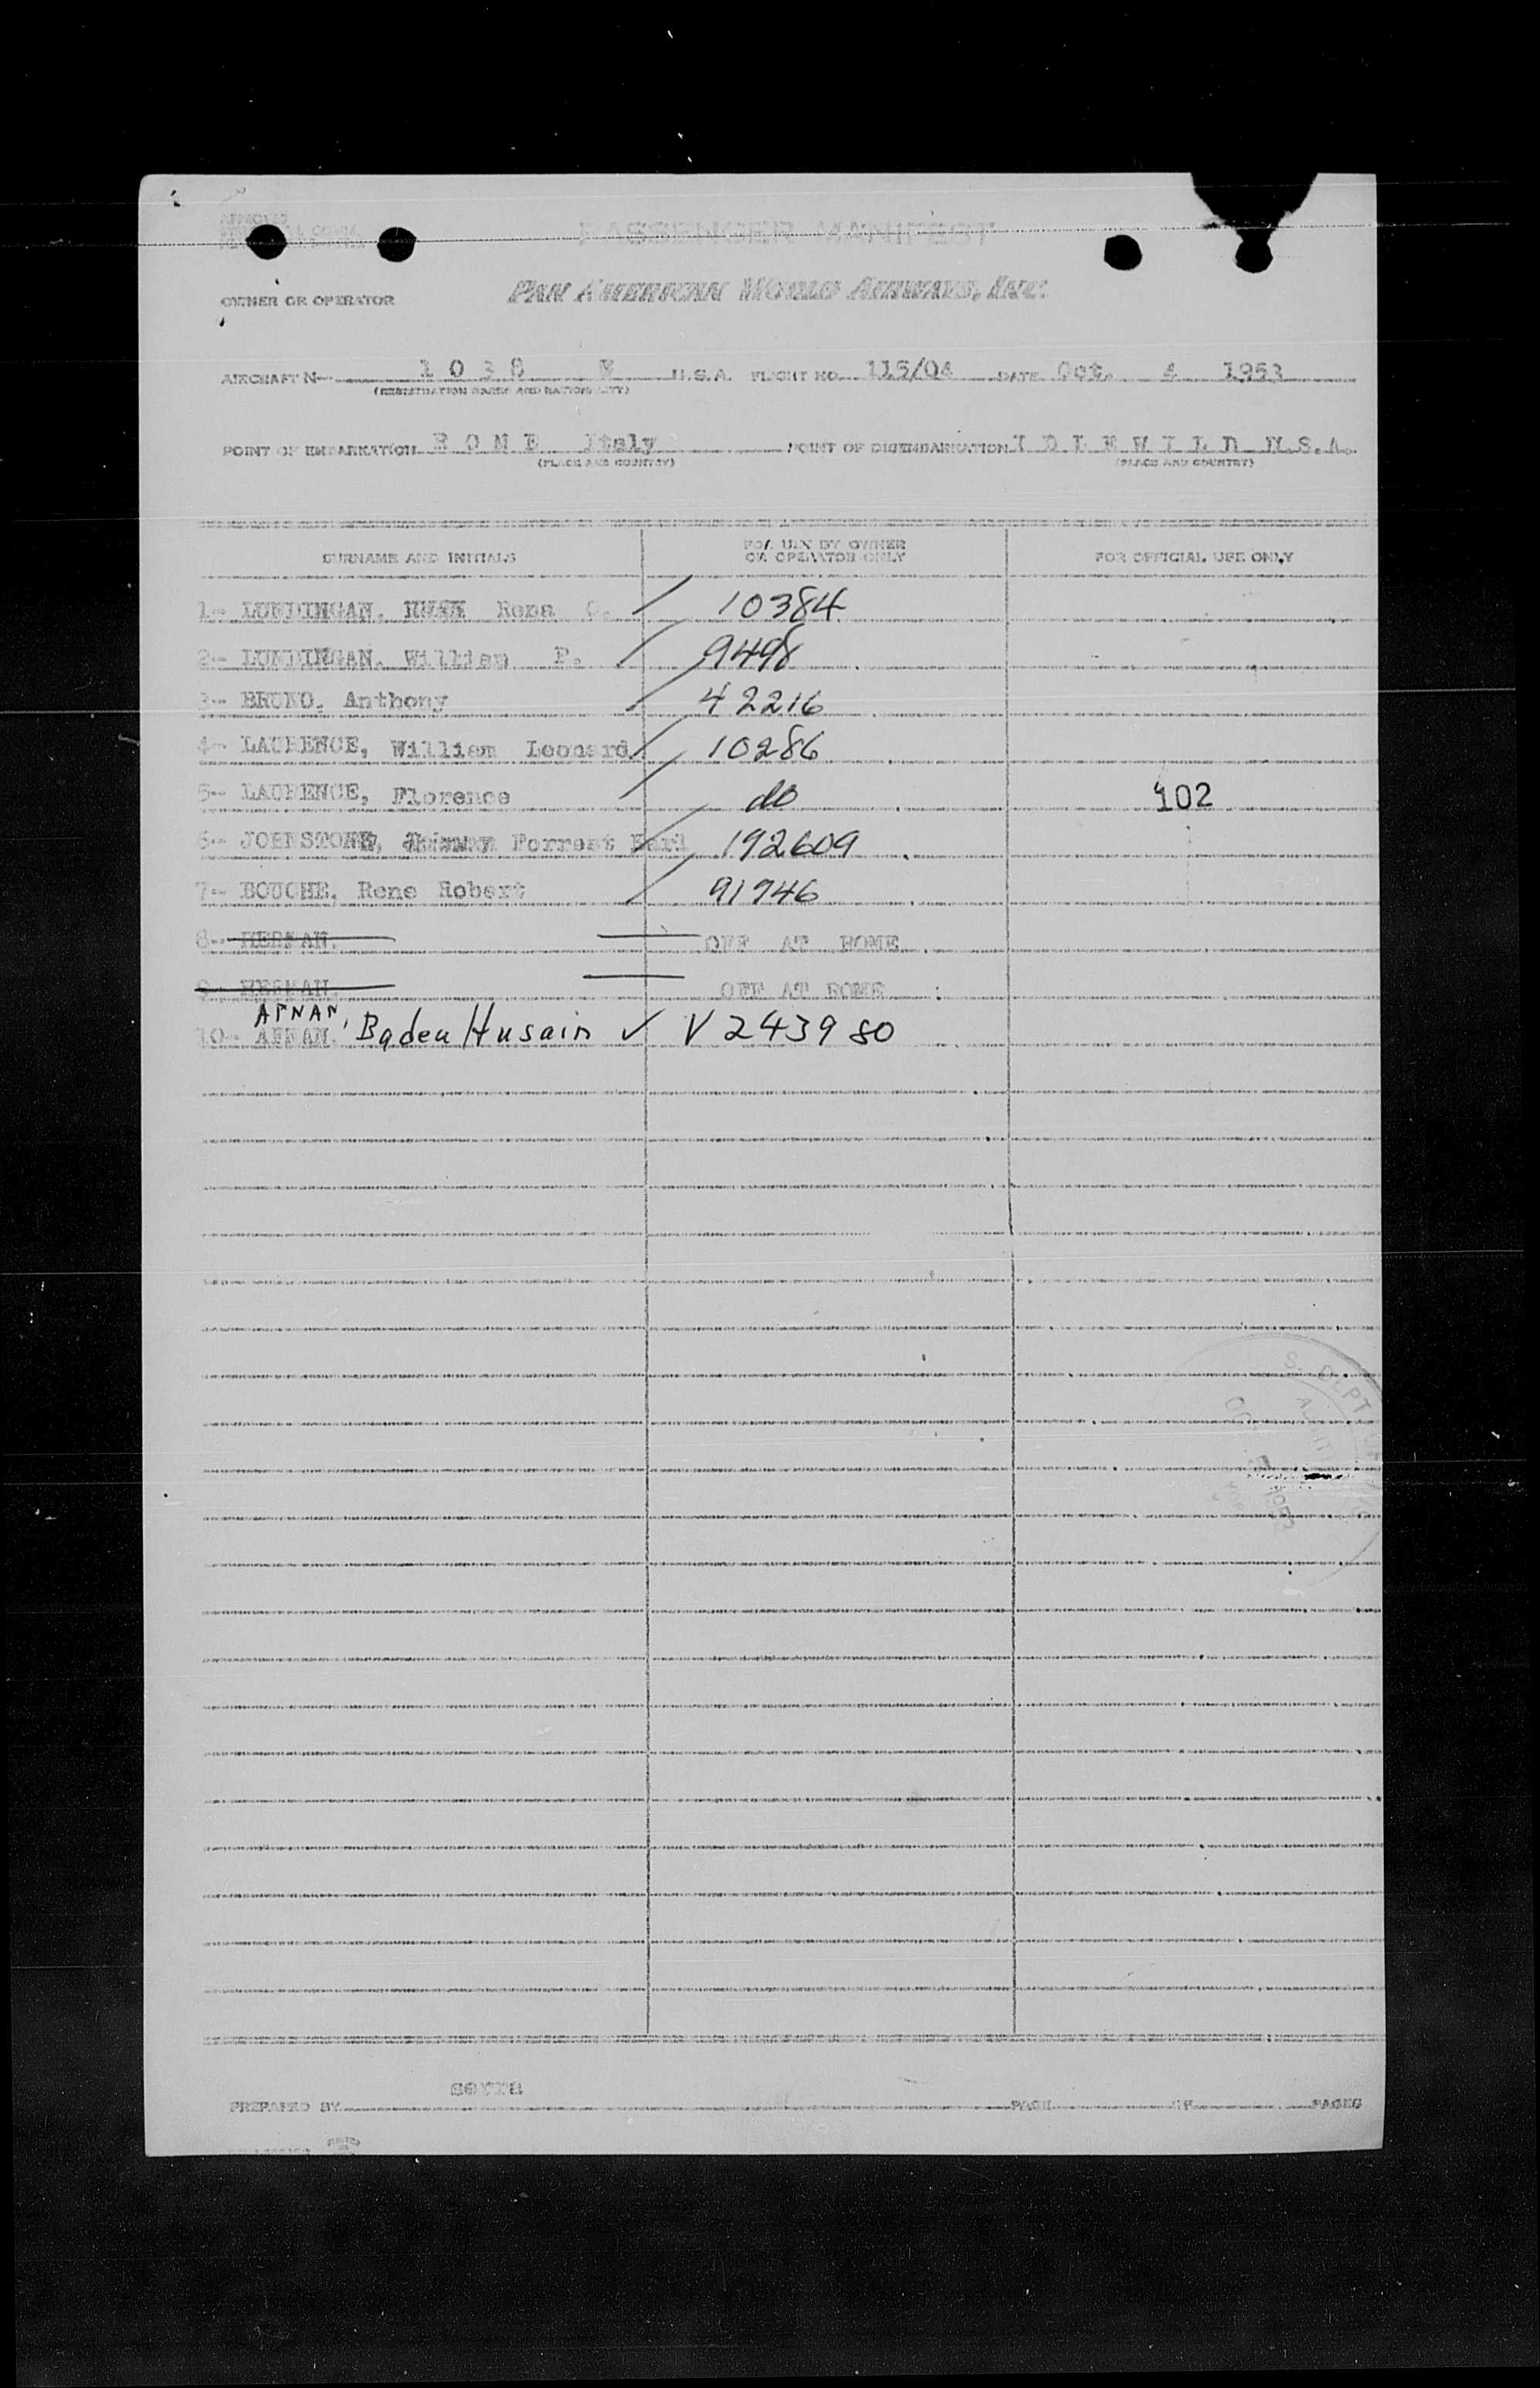 PASSENGER MANIFEST
PAN AMERICAN WORLD AIRWAYS, INC.
OWNER OR OPERATOR
AIRCRAFT N- 1 0 3 8 V U.S.A. FLIGHT NO. 115/04 DATE Oct. 4 1953
(REGISTRATION MARKS AND NATIONALITY)
POINT OF EMBARKATION R O M E Italy POINT OF DISEMBARKATION I D L E W I L D U.S.A.
(PLACE AND COUNTRY) (PLACE AND COUNTRY)
SURNAME AND INITIALS FOR USE BY OWNER OR OPERATOR ONLY FOR OFFICIAL USE ONLY
1- LUNDINGAN, Rena C. / 10384
2- LUNDINGAN, William P. / 9498
3- BRUNO, Anthony / 42216
4- LAURENCE, William Leonard / 10286
5- LAURENCE, Florence / do 102
6- JOHNSTONE, Forrest Earl / 192609
7- BOUCHE, Rene Robert / 91746
8- HERMAN. OFF AT ROME
9- HERMAN. OFF AT ROME
AFNAN,
10- AFNAN. Badea Husain ✓ V 243980
S. DEPT
OCT 1953
PREPARED BY PAGE OF PAGES